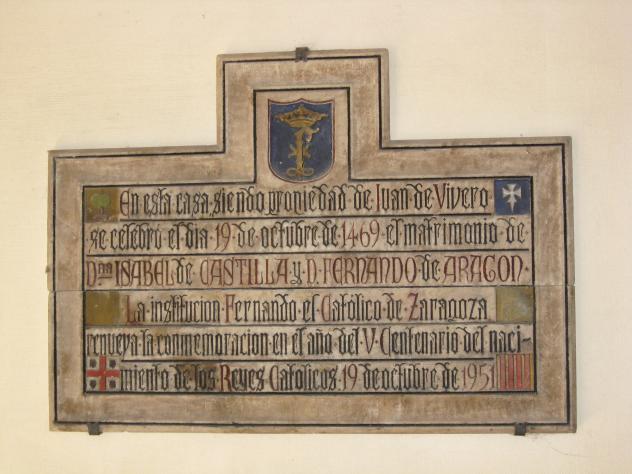 En esta casa, siendo propiedad de Juan de Vivero
se celebró el dia 19 de octubre de 1469 el matrimonio de
Dña ISABEL de CASTILLA y D. FERNANDO de ARAGON.
La institucion Fernando el Católico de Zaragoza
renueva la conmemoracion en el año del V Centenario del naci-
miento de los Reyes Catolicos. 19 de octubre de 1951